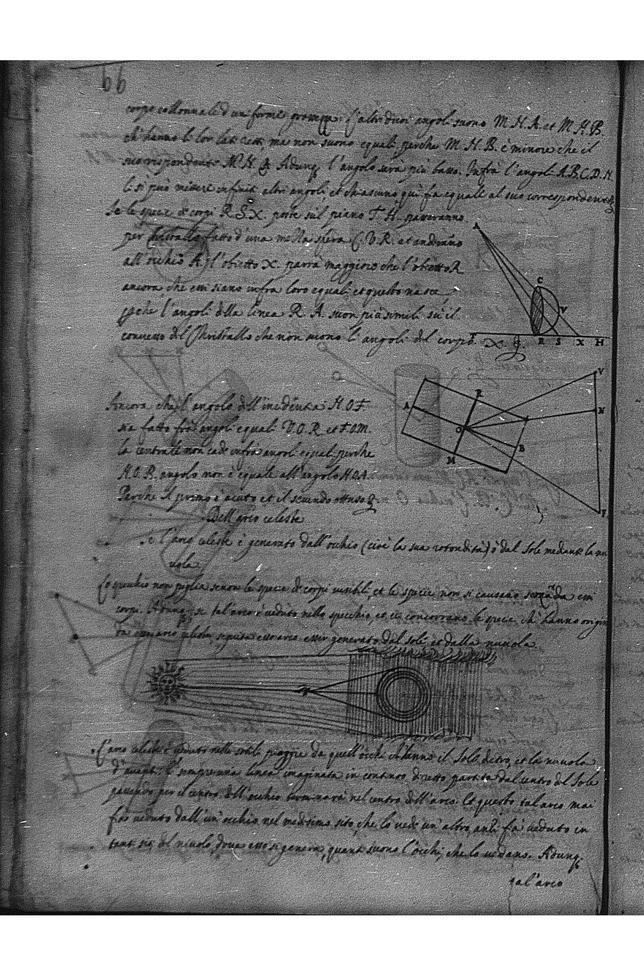 66
corpo collonnale d'uniforme grossezza. Gl'altri duoi angoli suono M.H.A. et M.H.B.
ch'hanno li lor lati retti, ma non suono equali, perche M.H.B. è minore che il
suo rispondente M.H.A. Adunq. l'angolo sarà più basso. Infrà l'angoli A.B.C.D.H.
li si può mettere infiniti altri angoli et chiascuno qui fa equale al suo correspondente
Se le specie de corpi R.S.X. poste sul piano T.H. passeranno
per christallo fatto d'una mezza spera C.V.R. et anderano
all'occhio A, l'obietto X. parrà maggiore che l'obietto R
ancora che essi siano infra loro equali et questo nasce
perche l'angoli della linea R.A. suon più simili su il
convesso del Christallo che non suono l'angoli del corpo X.
Ancora che l'angolo dell'incidentia H.O.F.
sia fatto frà angoli equali V.O.R. et F.O.M.
la centrale non cade infrà angoli equali perche
H.O.R. angolo non è equale all'angolo H.O.A.
Perche il primo è acuto et il secondo ottuso
Dell'arco celeste
Se l'arco celeste è generato dall'occhio (cioè la sua rotondità) ò dal Sole mediante la nu
vola.
Lo specchio non piglia senon le specie de corpi visibili et le specie non si causano senza da essi
corpi. Adunq. se tal'arco è veduto nello specchio, et ci concorrano le specie ch'hanno origin
da esso arco celeste, seguita esso arco esser generato dal sole et della nuvola
L'arco celeste è veduto nelle sottili pioggie da quell'occhi ch'hanno il Sole dietro, et la nuvola
d'avanti. E sempre una linea imaginata in continuo diretto partita dal centro del Sole
passando per il centro dell'occhio terminarà nel centro dell'arco. Et questo tal arco mai
fia veduto dall'un'occhio nel medesimo sito, che lo vede un'altro, anzi fia veduto in
tanti siti del nuvolo, dove esso si genera, quanti suono l'occhi, che lo vedano. Adunq.
tal'arco
A
C
V
T
R
S
X
H
V
R
A
N
O
B
M
F